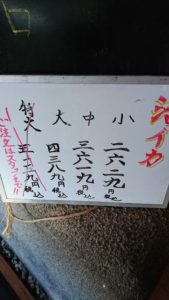 活イカ
小 二六二九円税込
中 三六一九円税込
大 四三八九円税込
特大 五一二九円税込
ご注文はスタッフまで!!